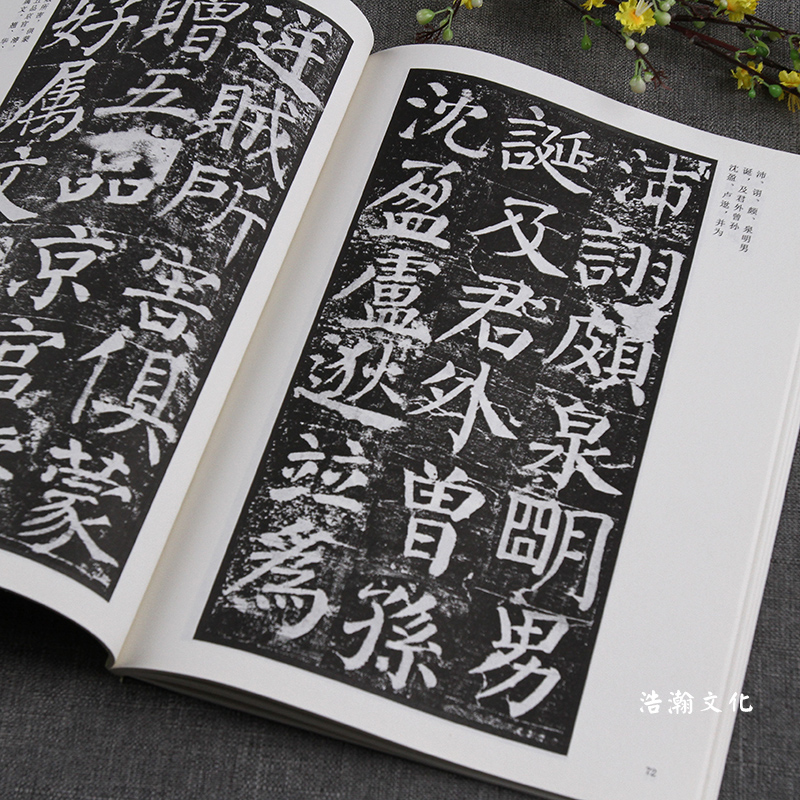 逆賊所害俱蒙
贈五品京官
好属文
沛、诩、颇、泉明男
诞，及君外曾孙
沈盈、卢逖，并为
沛詡頗泉明男
誕及君外曾孫
沈盈盧逖並為
72
浩瀚文化